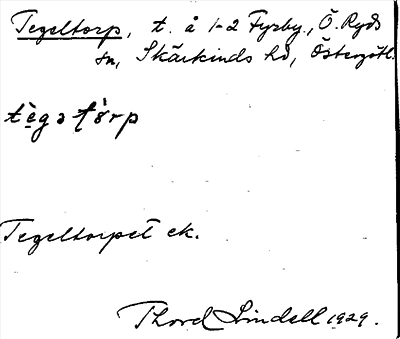 Tegeltorp, t. å 1-2 Fyrby., Ö. Ryds
sn, Skärkinds hd, Östergötl.
tègətòrp
Tegeltorpet ek.
Thord Lindell 1929.